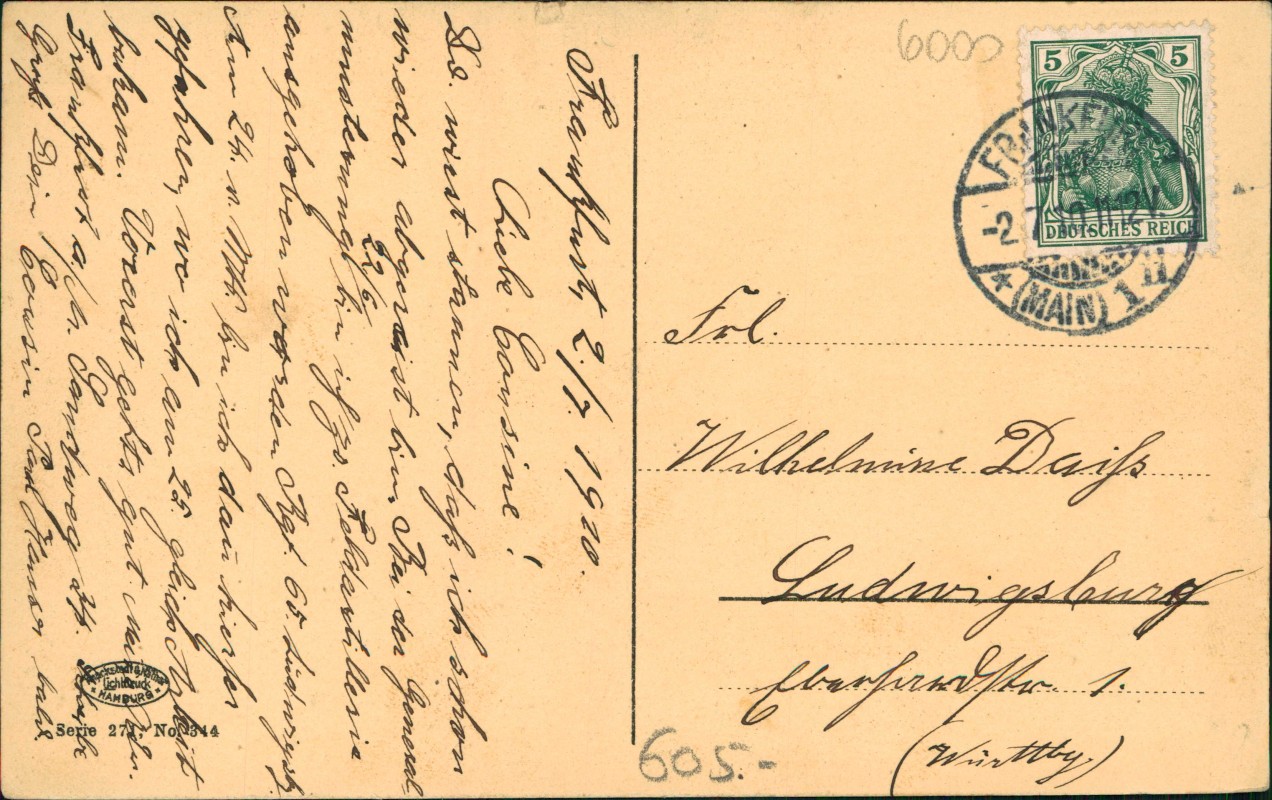 Frankfurt, 2./7. 1910.
Liebe Cousine!
Du wirst staunen, daß ich schon
wieder abgereist bin. Bei der General-
musterung 22/6 bin ich zs. Feldartillerie
ausgehoben worden Rgt. 65. Ludwigsbg
Am 24. v. Mts. bin ich dan hierher
gefahren, wo ich am 25 gleich Arbeit
bekam. Vorerst gehts gut
Frankfurt a/M. Sandweg 24. Schreibe
Gruß Dein Cousin Paul bald.
6000
5 5
DEUTSCHES REICH
FRANKFURT
-2.7.10.11-12V.
* (MAIN) 1 n
Frl.
Wilhelmine Daiß
Ludwigsburg
Eberhardstr. 1.
(Württbg.)
605.-
Lichtdruck
* HAMBURG *
Serie 271, No. 344